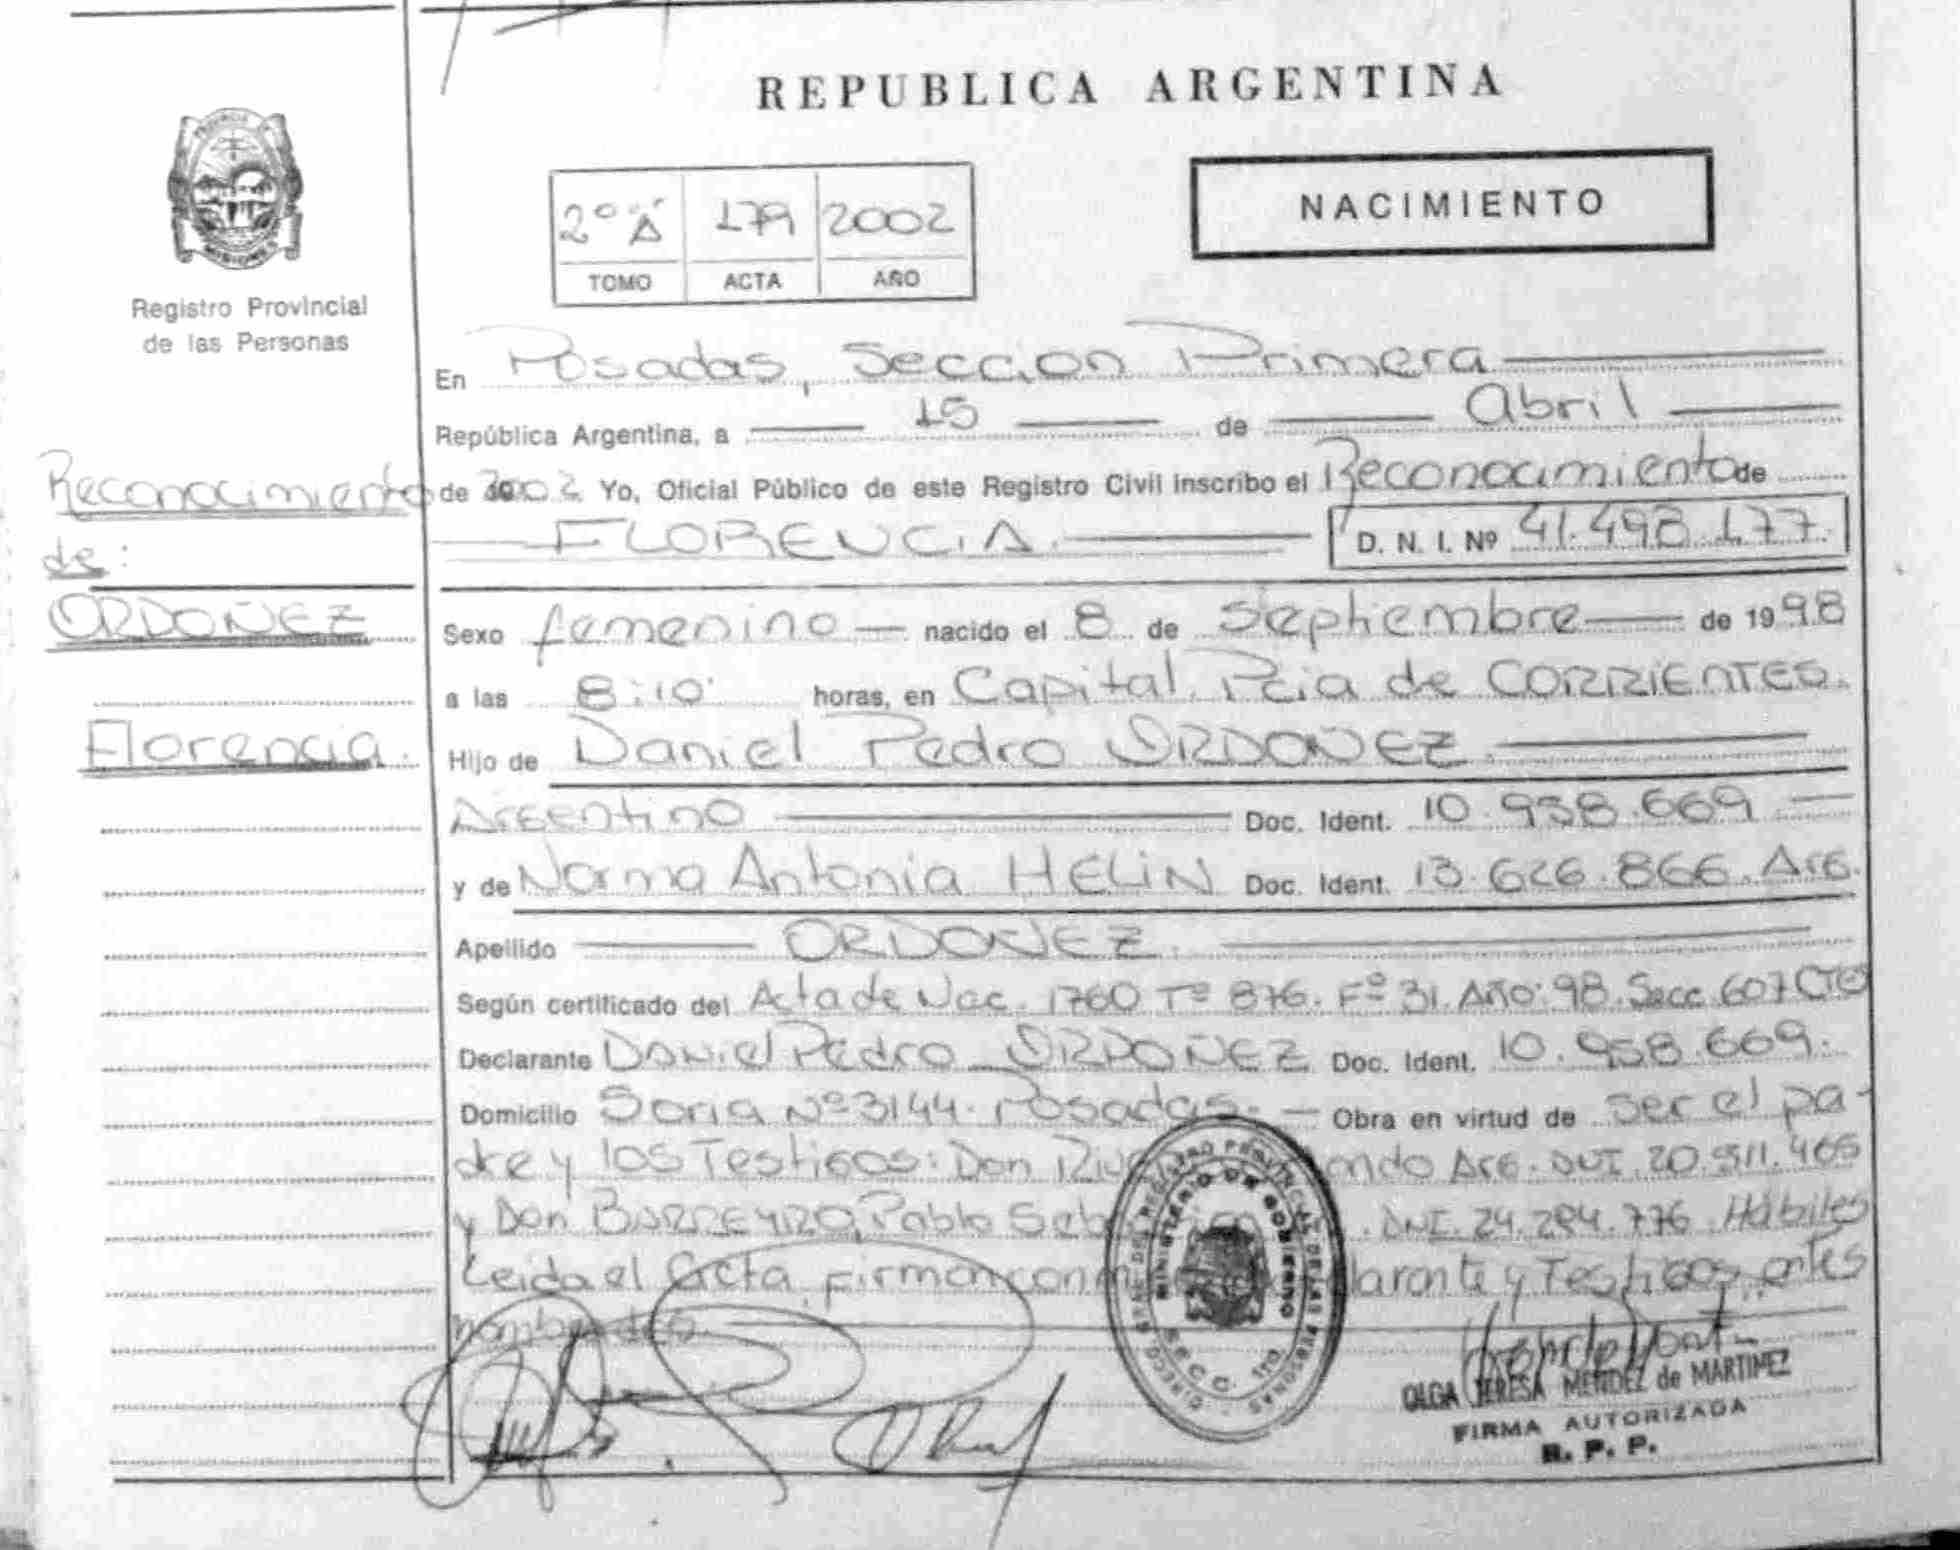 REPUBLICA ARGENTINA
NACIMIENTO
2º A 179 2002
TOMO ACTA AÑO
PROVINCIA
MISIONES
Registro Provincial
de las Personas
En Posadas, Sección Primera
República Argentina, a 15 de Abril
de 2002 Yo, Oficial Público de este Registro Civil inscribo el Reconocimiento de
FLORENCIA. D. N. I. Nº 41.498.177.
Reconocimiento
de:
ORDOÑEZ
Florencia.
Sexo femenino nacido el 8 de Septiembre de 1998
a las 8:10 horas, en Capital. Pcia de CORRIENTES.
Hijo de Daniel Pedro ORDOÑEZ
Argentino Doc. Ident. 10.958.669
y de Norma Antonia HELIN Doc. Ident. 13.626.866. Arg.
Apellido ORDOÑEZ.
Según certificado del Acta de Nac. 1760 Tº 876. Fº 31. Año: 98. Secc 607 CTES
Declarante Daniel Pedro ORDOÑEZ Doc. Ident. 10.958.669.
Domicilio Soria Nº 3144. Posadas. Obra en virtud de ser el pa-
dre y los Testigos: Don Arg. DNI. 20.511.465
y Don BARREYRO, Pablo DNI. 24.284.776. Hábiles
Leida el Acta, firman con Testigos antes
nombrados.
DEL REGISTRO PROVINCIAL DE LAS PERSONAS
MINISTERIO DE GOBIERNO
SECC. 1ra
OLGA TERESA MENDEZ de MARTINEZ
FIRMA AUTORIZADA
R. P. P.